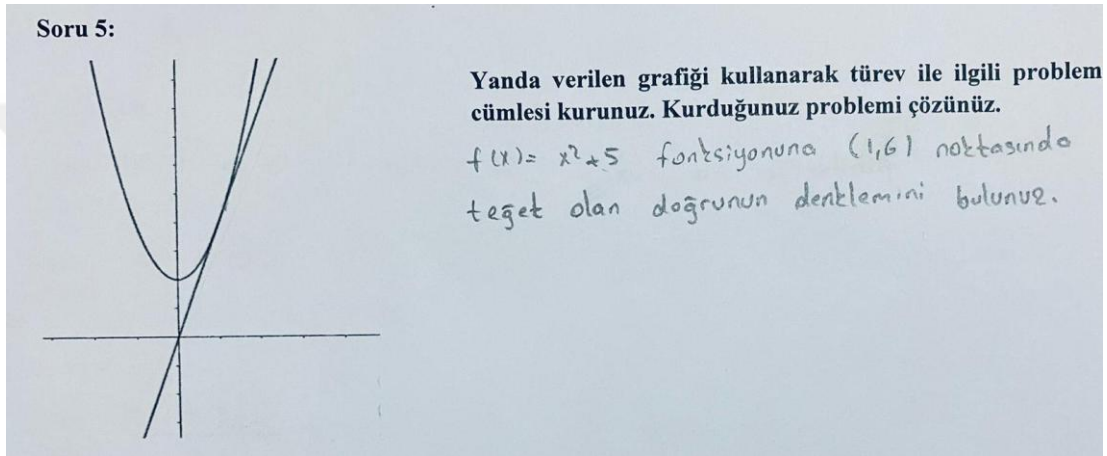 Soru 5:
Yanda verilen grafiği kullanarak türev ile ilgili problem
cümlesi kurunuz. Kurduğunuz problemi çözünüz.
f(x)= x²+5 fonksiyonuna (1,6) noktasında
teğet olan doğrunun denklemini bulunuz.